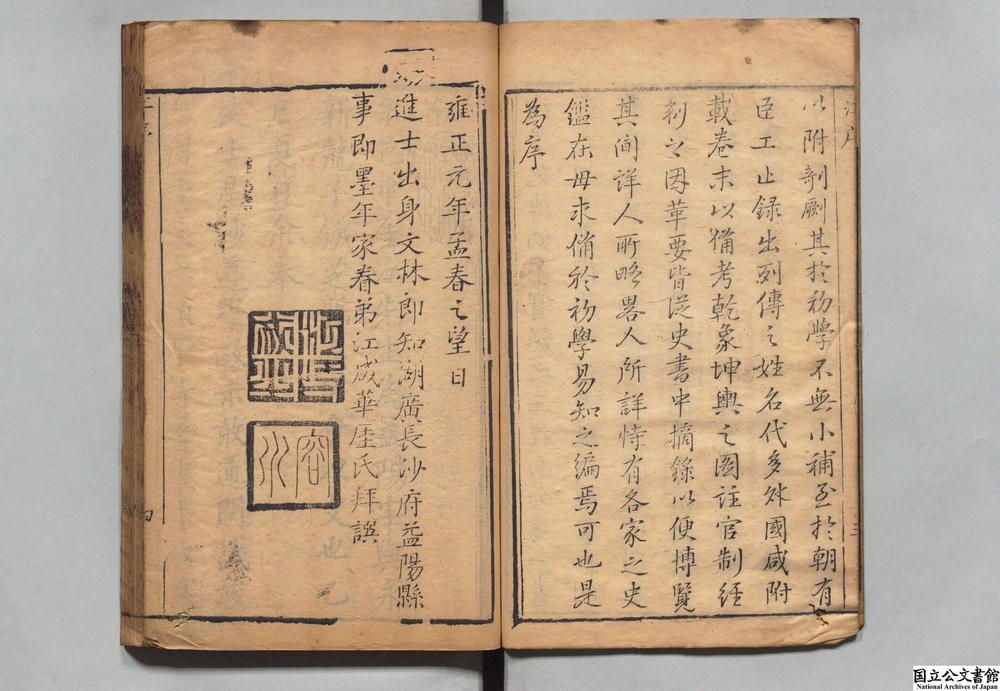 以附剞劂其於初學不無小補至於朝有
臣工止錄出列傳之姓名代多外國咸附
載卷末以備考乾象坤輿之圖註官制經
制之因革要皆從史書中摘錄以便博覽
其间詳人所略畧人所詳恃有各家之史
鑑在毋求備於初學易知之編焉可也是
為序
雍正元年孟春之望日
進士出身文林郎知湖廣長沙府益陽縣
事即墨年家眷弟江成華厓氏拜譔
國立公文書館
National Archives of Japan